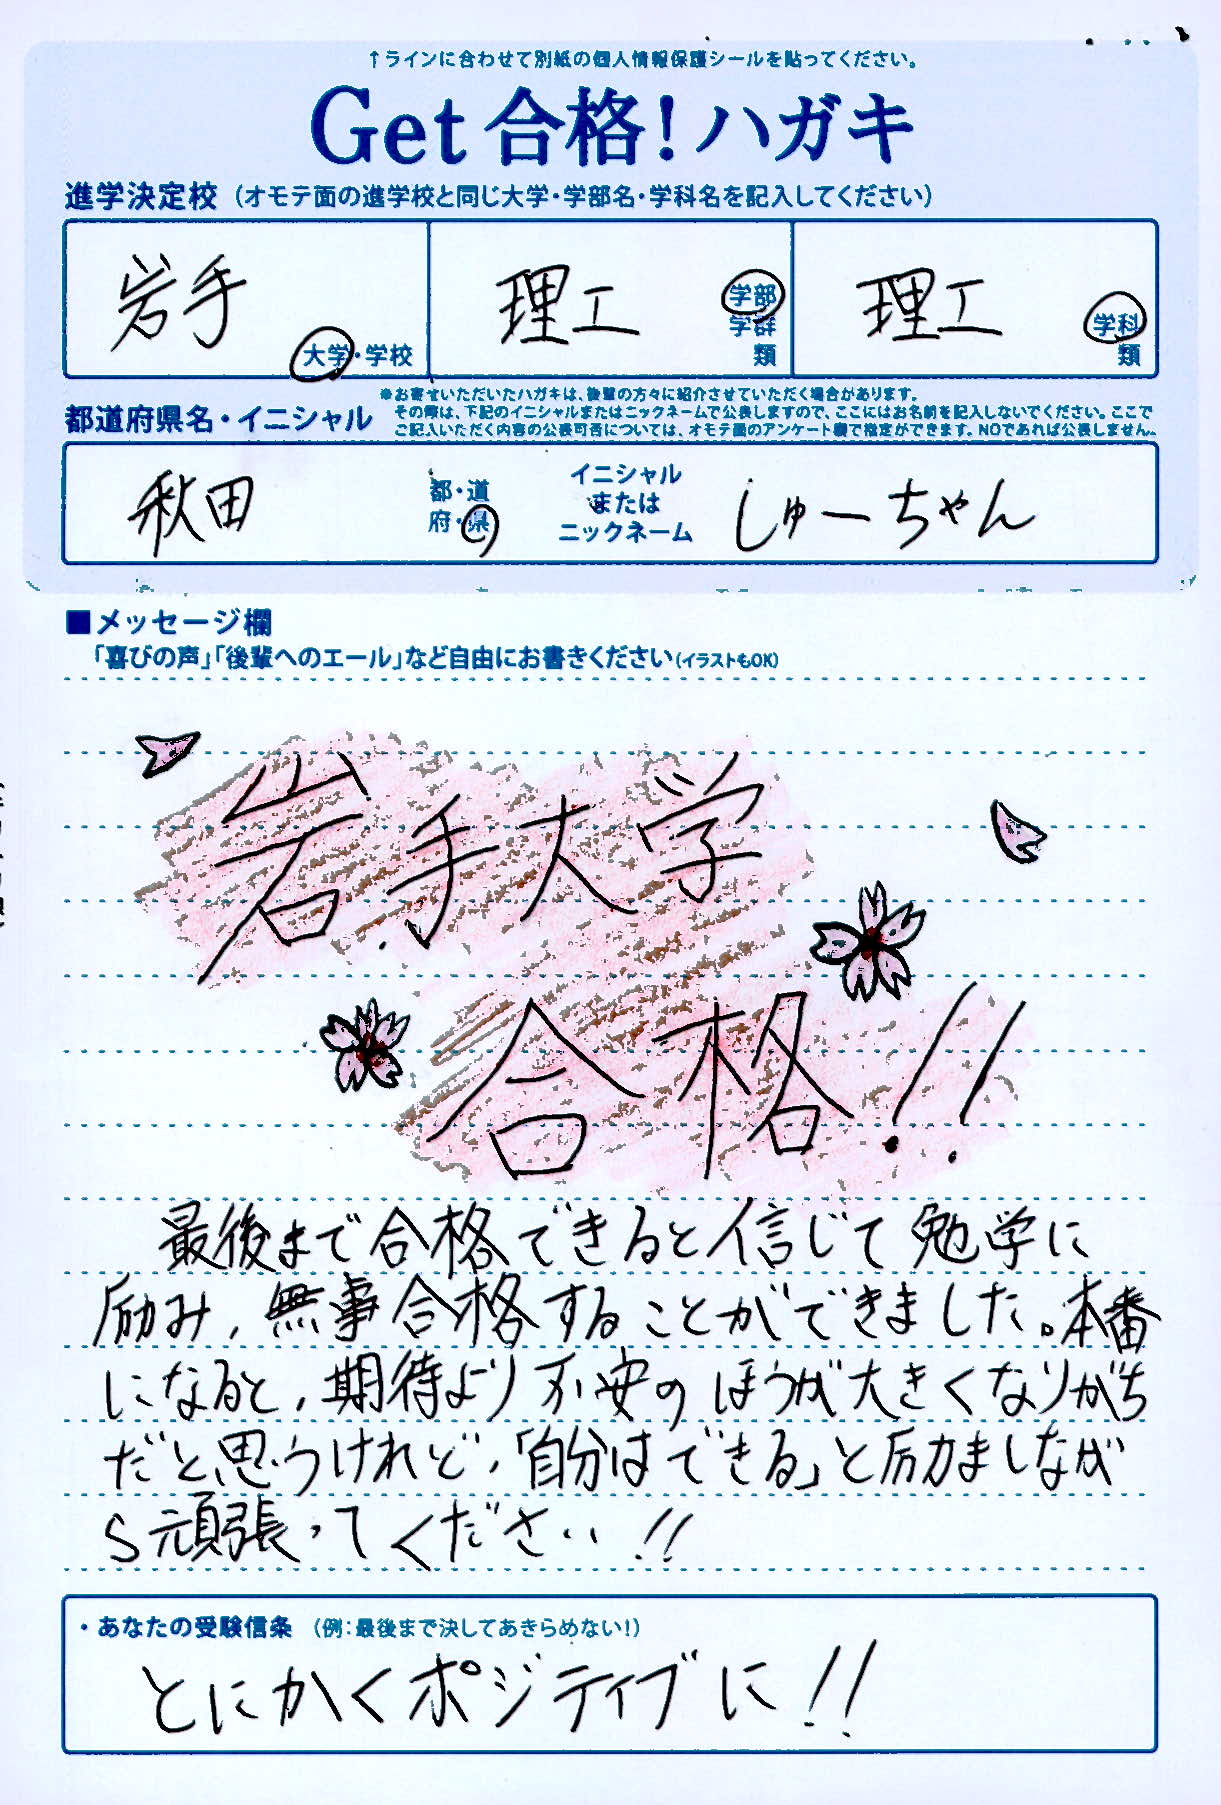 ↑ラインに合わせて別紙の個人情報保護シールを貼ってください。
Get 合格！ハガキ
進学決定校（オモテ面の進学校と同じ大学・学部名・学科名を記入してください）
岩手 大学・学校
理工 学部 学群 類
理工 学科 類
都道府県名・イニシャル
※お寄せいただいたハガキは、後輩の方々に紹介させていただく場合があります。
その際は、下記のイニシャルまたはニックネームで公表しますので、ここにはお名前を記入しないでください。ここで
ご記入いただく内容の公表可否については、オモテ面のアンケート欄で指定ができます。NOであれば公表しません。
秋田 都・道 府・県
イニシャル または ニックネーム しゅーちゃん
■メッセージ欄
「喜びの声」「後輩へのエール」など自由にお書きください（イラストもOK）
岩手大学
合格!!
最後まで合格できると信じて勉学に
励み、無事合格することができました。本番
になると、期待より不安のほうが大きくなりがち
だと思うけれど、「自分はできる」と励ましなが
ら頑張ってください!!
・あなたの受験信条（例：最後まで決してあきらめない！）
とにかくポジティブに!!